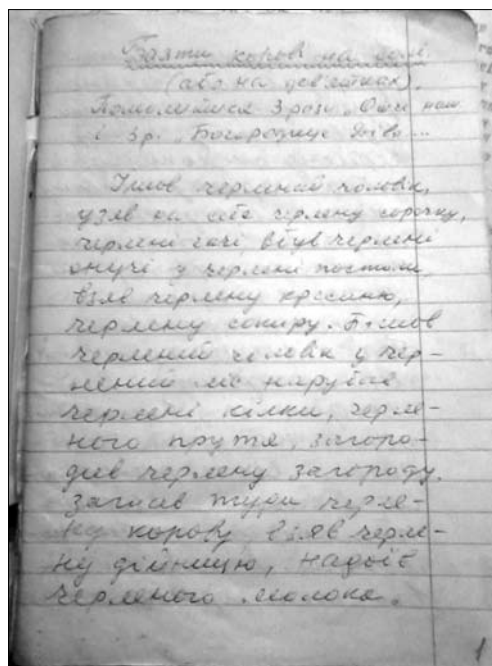 Взяти корові на солі
(або на дев'ятках).
Помолитися 3 рази „Отче наш
і 3 р. „Богородице Діво...
Ішов черлений чоловік,
узяв на себе черлену сорочку,
черлені гачі, вбув черлені
онучі у черлені постоли,
взяв черлену кресаню,
черлену сокиру. Пішов
черлений чоловік у чер-
лений ліс нарубав
черлені кілки, черле-
ного пруття, загоро-
див черлену загороду.
Загнав тури черле-
ну корову взяв черле-
ну дійницю, надоїв
черленого молока.
1